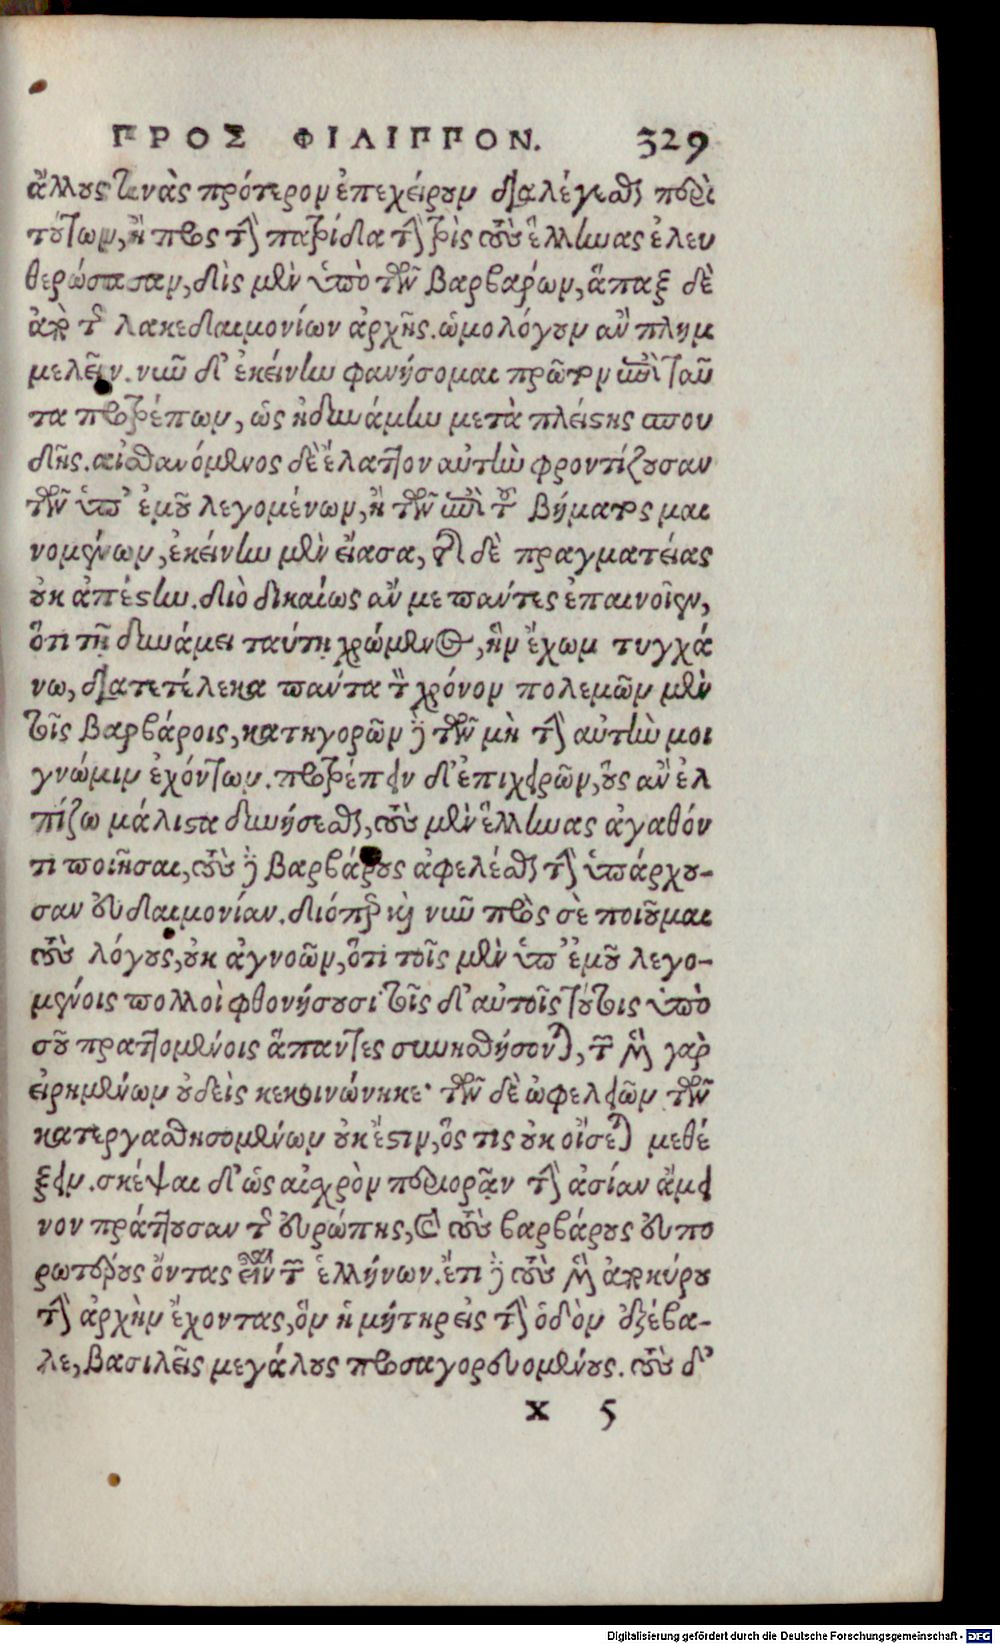 ΠΡΟΣ ΦΙΛΙΠΠΟΝ. 329
ἄλλους τινὰς πρότερον ἐπεχείρουν διαλέγεσθαι περὶ
τούτων, ἢ πρὸς τὴν πατρίδα τὴν τρὶς τοὺς ἕλληνας ἐλευ
θερώσασαν, δὶς μὲν ὑπὸ τῶν βαρβάρων, ἅπαξ δὲ
ἀπὸ τῆς λακεδαιμονίων ἀρχῆς. ὡμολόγουν ἂν πλημ
μελεῖν. νῦν δ' ἐκείνην φανήσομαι πρῶτον ἐπὶ ταῦ
τα προτρέπων, ὡς ἠδυνάμην μετὰ πλείστης σπου
δῆς. αἰσθανόμενος δὲ ἔλαττον αὐτὴν φροντίζουσαν
τῶν ὑπ' ἐμοῦ λεγομένων, ἢ τῶν ἐπὶ τοῦ βήματος μαι
νομένων, ἐκείνην μὲν εἴασα, τῆς δὲ πραγματείας
οὐκ ἀπέστην. διὸ δικαίως ἄν με πάντες ἐπαινοῖεν,
ὅτι τῇ δυνάμει ταύτῃ χρώμενος, ἣν ἔχων τυγχά
νω, διατετέλεκα πάντα τὸν χρόνον πολεμῶν μὲν
τοῖς βαρβάροις, κατηγορῶν δὲ τῶν μὴ τὴν αὐτὴν μοι
γνώμην ἐχόντων. προτρέπειν δ' ἐπιχειρῶν, οὓς ἂν ἐλ
πίζω μάλιστα δυνήσεσθαι, τοὺς μὲν ἕλληνας ἀγαθόν
τι ποιῆσαι, τοὺς δὲ βαρβάρους ἀφελέσθαι τὴν ὑπάρχου-
σαν εὐδαιμονίαν. διόπερ καὶ νῦν πρὸς σὲ ποιοῦμαι
τοὺς λόγους, οὐκ ἀγνοῶν, ὅτι τοῖς μὲν ὑπ' ἐμοῦ λεγο-
μένοις πολλοὶ φθονήσουσι· τοῖς δ' αὐτοῖς τούτοις ὑπὸ
σοῦ πραττομένοις ἅπαντες συνησθήσονται, τῶν μὲν γὰρ
εἰρημένων οὐδεὶς κεκοινώνηκε· τῶν δὲ ὠφελειῶν τῶν
κατεργασθησομένων οὐκ ἔστιν, ὅς τις οὐκ οἴσεται μεθέ
ξειν. σκέψαι δ' ὡς αἰσχρὸν περιορᾷν τὴν ἀσίαν ἄμει
νον πράττουσαν τῆς εὐρώπης, καὶ τοὺς βαρβάρους εὐπο
ρωτέρους ὄντας εἶναι τῶν ἑλλήνων. ἔτι δὲ τοὺς μὲν ἀπὸ κύρου
τὴν ἀρχὴν ἔχοντας, ὃν ἡ μήτηρ εἰς τὴν ὁδὸν ἐξέβα-
λε, βασιλεῖς μεγάλους προσαγορευομένους. τοὺς δ'
x 5
Digitalisierung gefördert durch die Deutsche Forschungsgemeinschaft - DFG